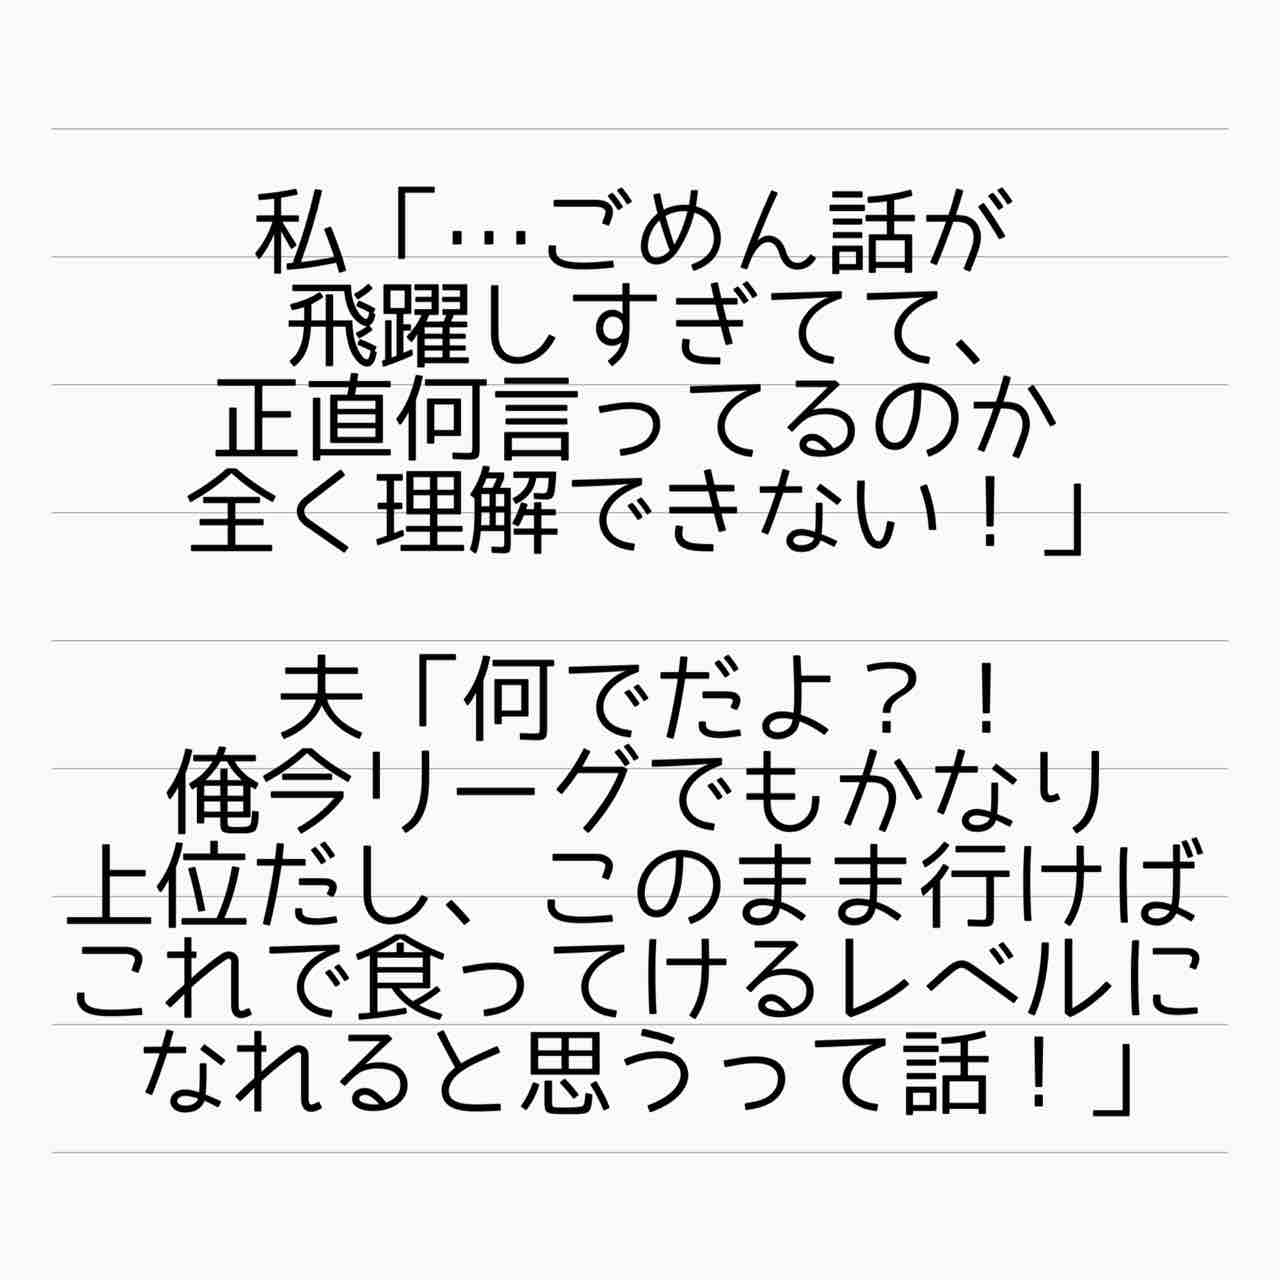 私「…ごめん話が
飛躍しすぎてて、
正直何言ってるのか
全く理解できない！」
夫「何でだよ？！
俺今リーグでもかなり
上位だし、このまま行けば
これで食ってけるレベルに
なれると思うって話！」